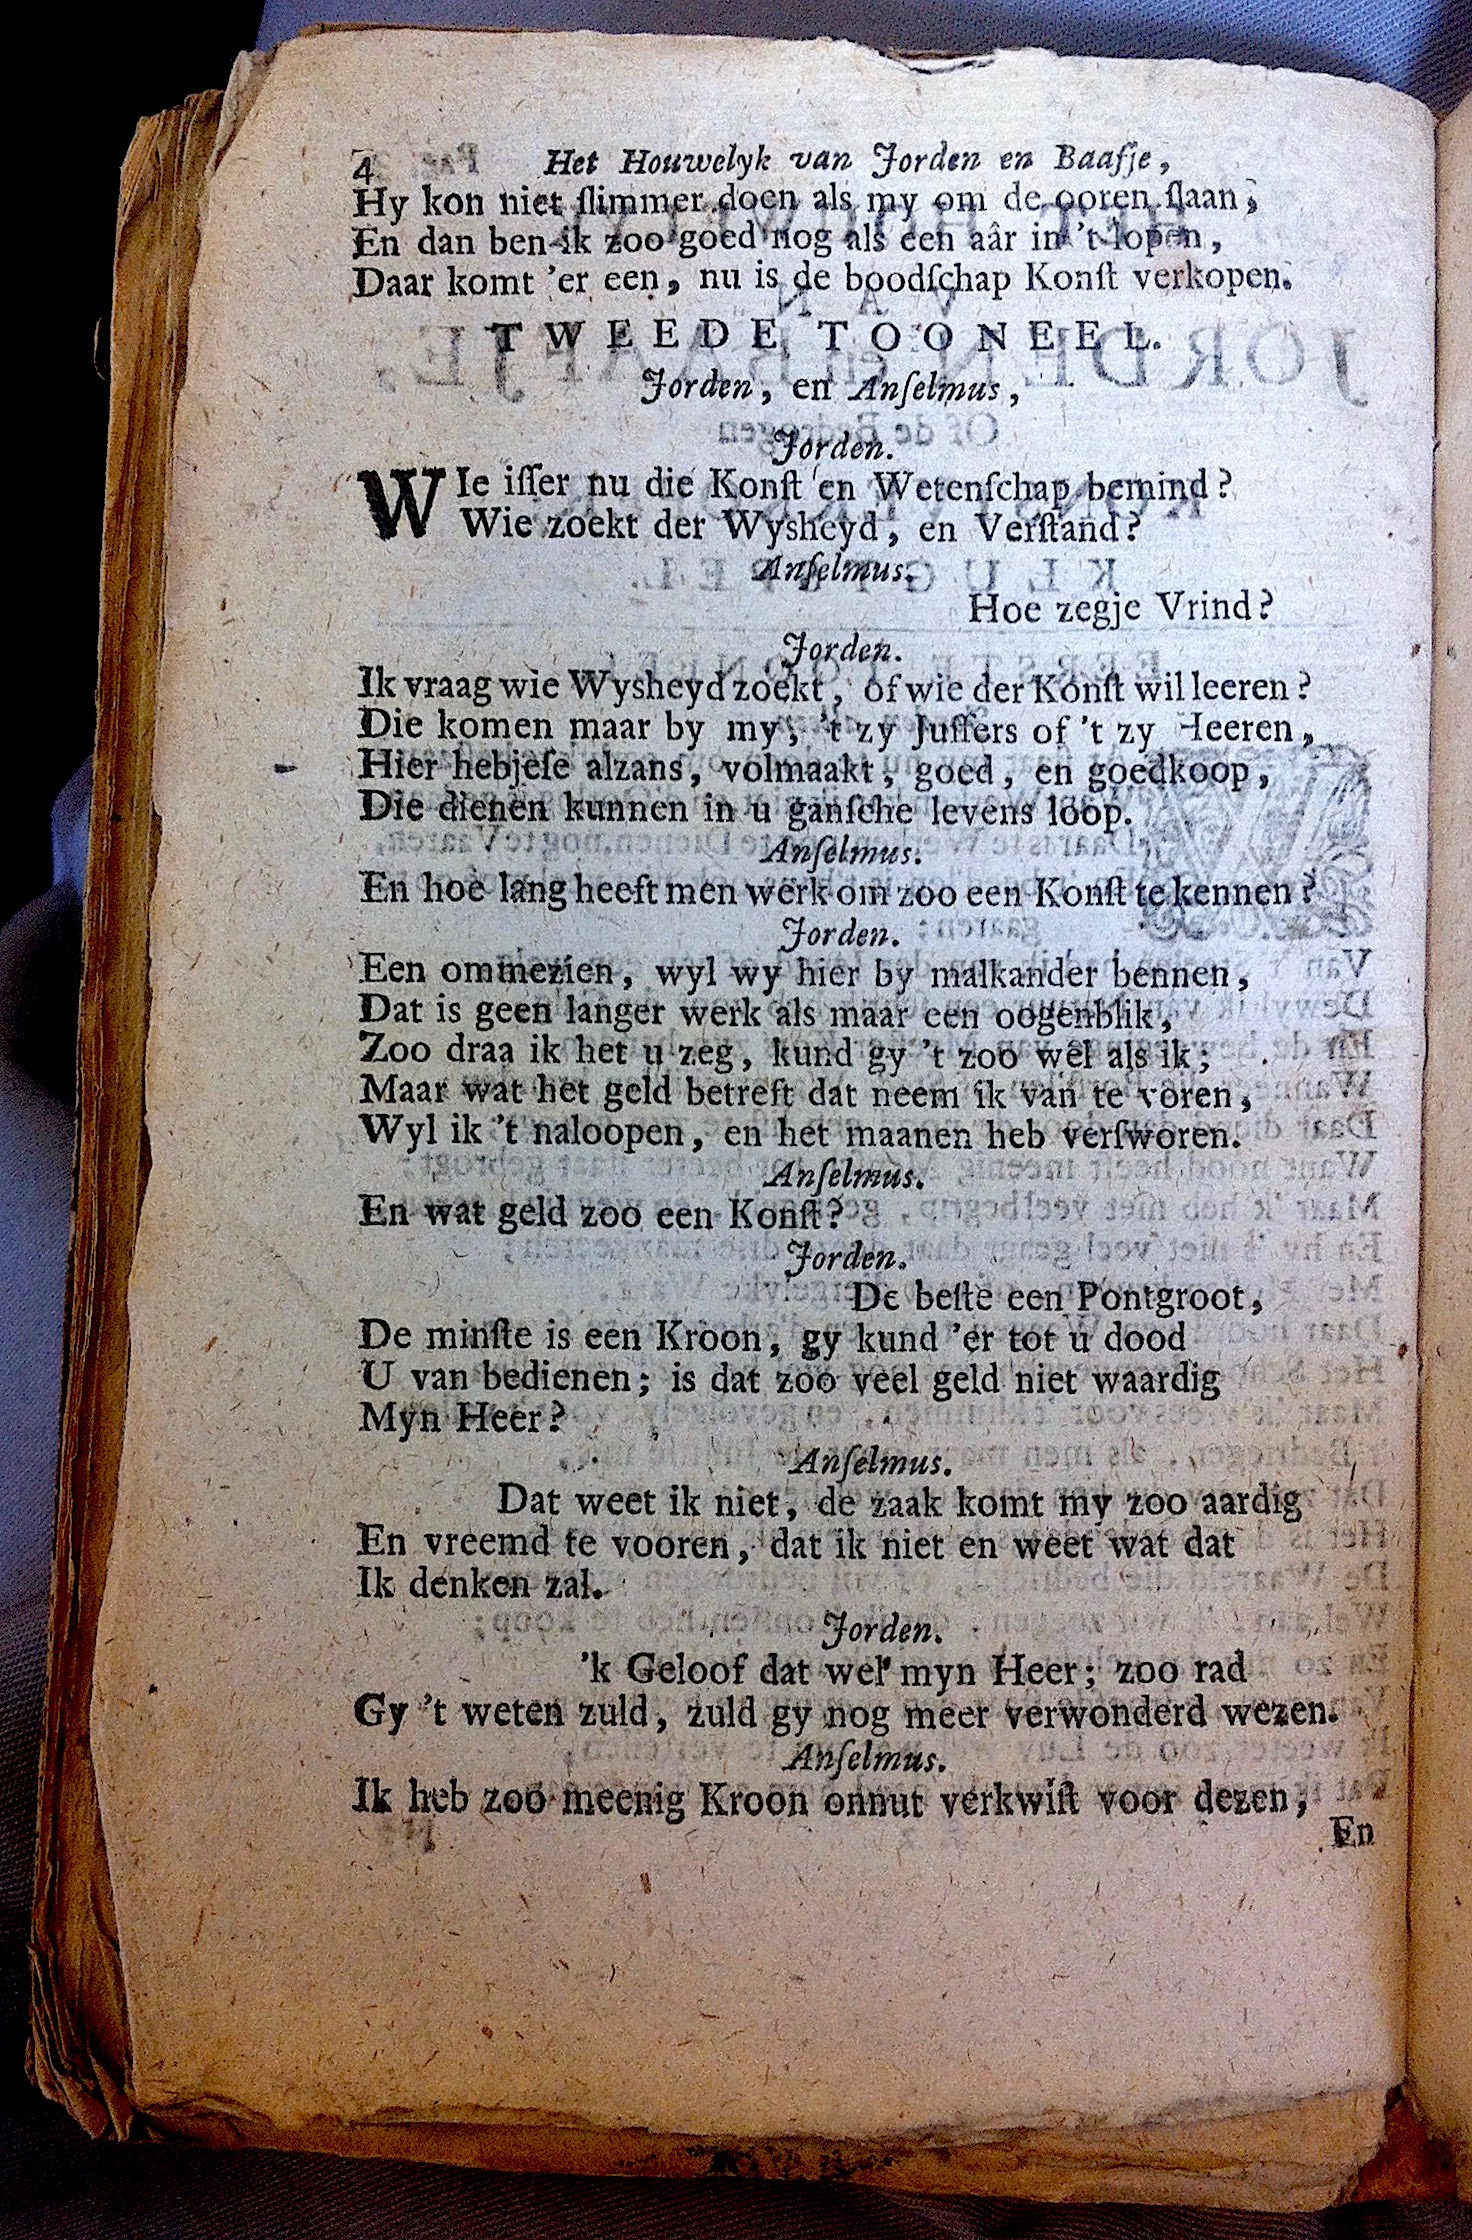 4 Het Houwelyk van Jorden en Baaſje,
Hy kon niet ſlimmer doen als my om de ooren ſlaan,
En dan ben ik zoo goed nog als een aâr in 't lopen,
Daar komt 'er een, nu is de boodſchap Konſt verkopen.
TWEEDE TOONEEL.
Jorden, en Anſelmus,
Jorden.
WIe iſſer nu die Konſt en Wetenſchap bemind?
Wie zoekt der Wysheyd, en Verſtand?
Anſelmus.
Hoe zegje Vrind?
Jorden.
Ik vraag wie Wysheyd zoekt, of wie der Konſt wil leeren?
Die komen maar by my, 't zy Juffers of 't zy Heeren,
Hier hebjeſe alzans, volmaakt, goed, en goedkoop,
Die dienen kunnen in u ganſche levens loop.
Anſelmus.
En hoe lang heeft men werk om zoo een Konſt te kennen?
Jorden.
Een ommezien, wyl wy hier by malkander bennen,
Dat is geen langer werk als maar een oogenblik,
Zoo draa ik het u zeg, kund gy 't zoo wel als ik;
Maar wat het geld betreft dat neem ik van te voren,
Wyl ik 't naloopen, en het maanen heb verſworen.
Anſelmus.
En wat geld zoo een Konſt?
Jorden.
De beſte een Pontgroot,
De minſte is een Kroon, gy kund 'er tot u dood
U van bedienen; is dat zoo veel geld niet waardig
Myn Heer?
Anſelmus.
Dat weet ik niet, de zaak komt my zoo aardig
En vreemd te vooren, dat ik niet en weet wat dat
Ik denken zal.
Jorden.
'k Geloof dat wel myn Heer; zoo rad
Gy 't weten zuld, zuld gy nog meer verwonderd wezen.
Anſelmus.
Ik heb zoo meenig Kroon onnut verkwiſt voor dezen,
En